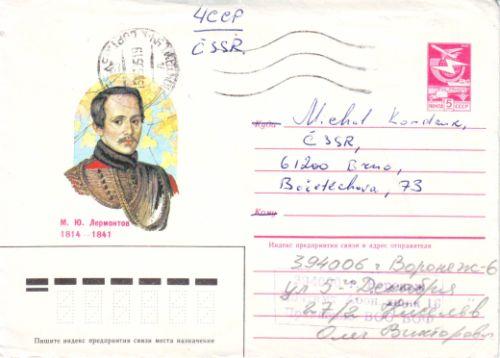 ЧССР
ČSSR
ПОЧТА 5 СССР
Куда
Michal
ČSSR,
61200 Brno,
Božetěchova, 73
Кому
М. Ю. Лермонтов
1814—1841
Индекс предприятия связи и адрес отправителя
394006 г Воронеж-6
ул 5-Декабря
27/2 Киселёв
Олег Викторович
Пишите индекс предприятия связи места назначения